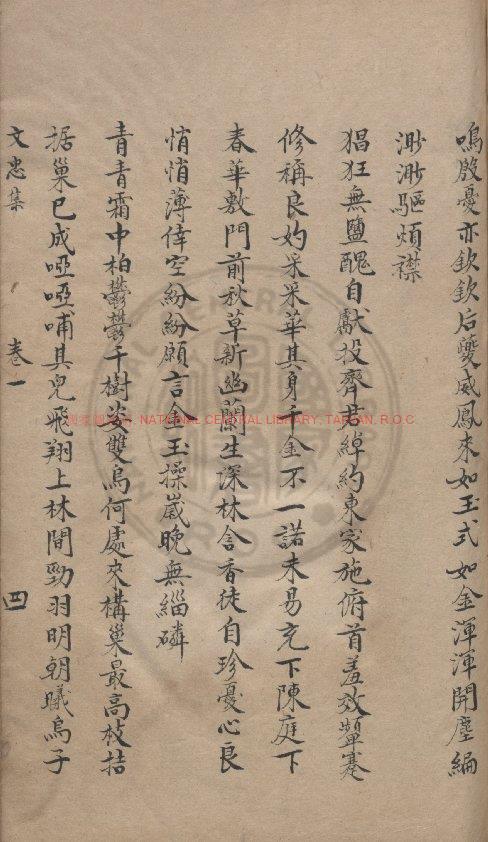 鳴殷憂亦欽欽后夔威鳳來如玉式如金渾渾開塵編
渺渺驅煩襟
猖狂無鹽醜自獻投齊君綽約東家施俯首羞效顰蹇
修稱良妁采采華其身千金不一諾未易充下陳庭下
春華敷門前秋草新幽蘭生深林含香徒自珍憂心良
悄悄薄倖空紛紛願言金玉操歲晚無緇磷
青青霜中柏鬱鬱千樹姿雙烏何處來構巢最高枝拮
据巢已成啞啞哺其兒飛翔上林間勁羽明朝曦烏子
文忠集 卷一 四
國家圖書館, NATIONAL CENTRAL LIBRARY, TAIWAN, R.O.C